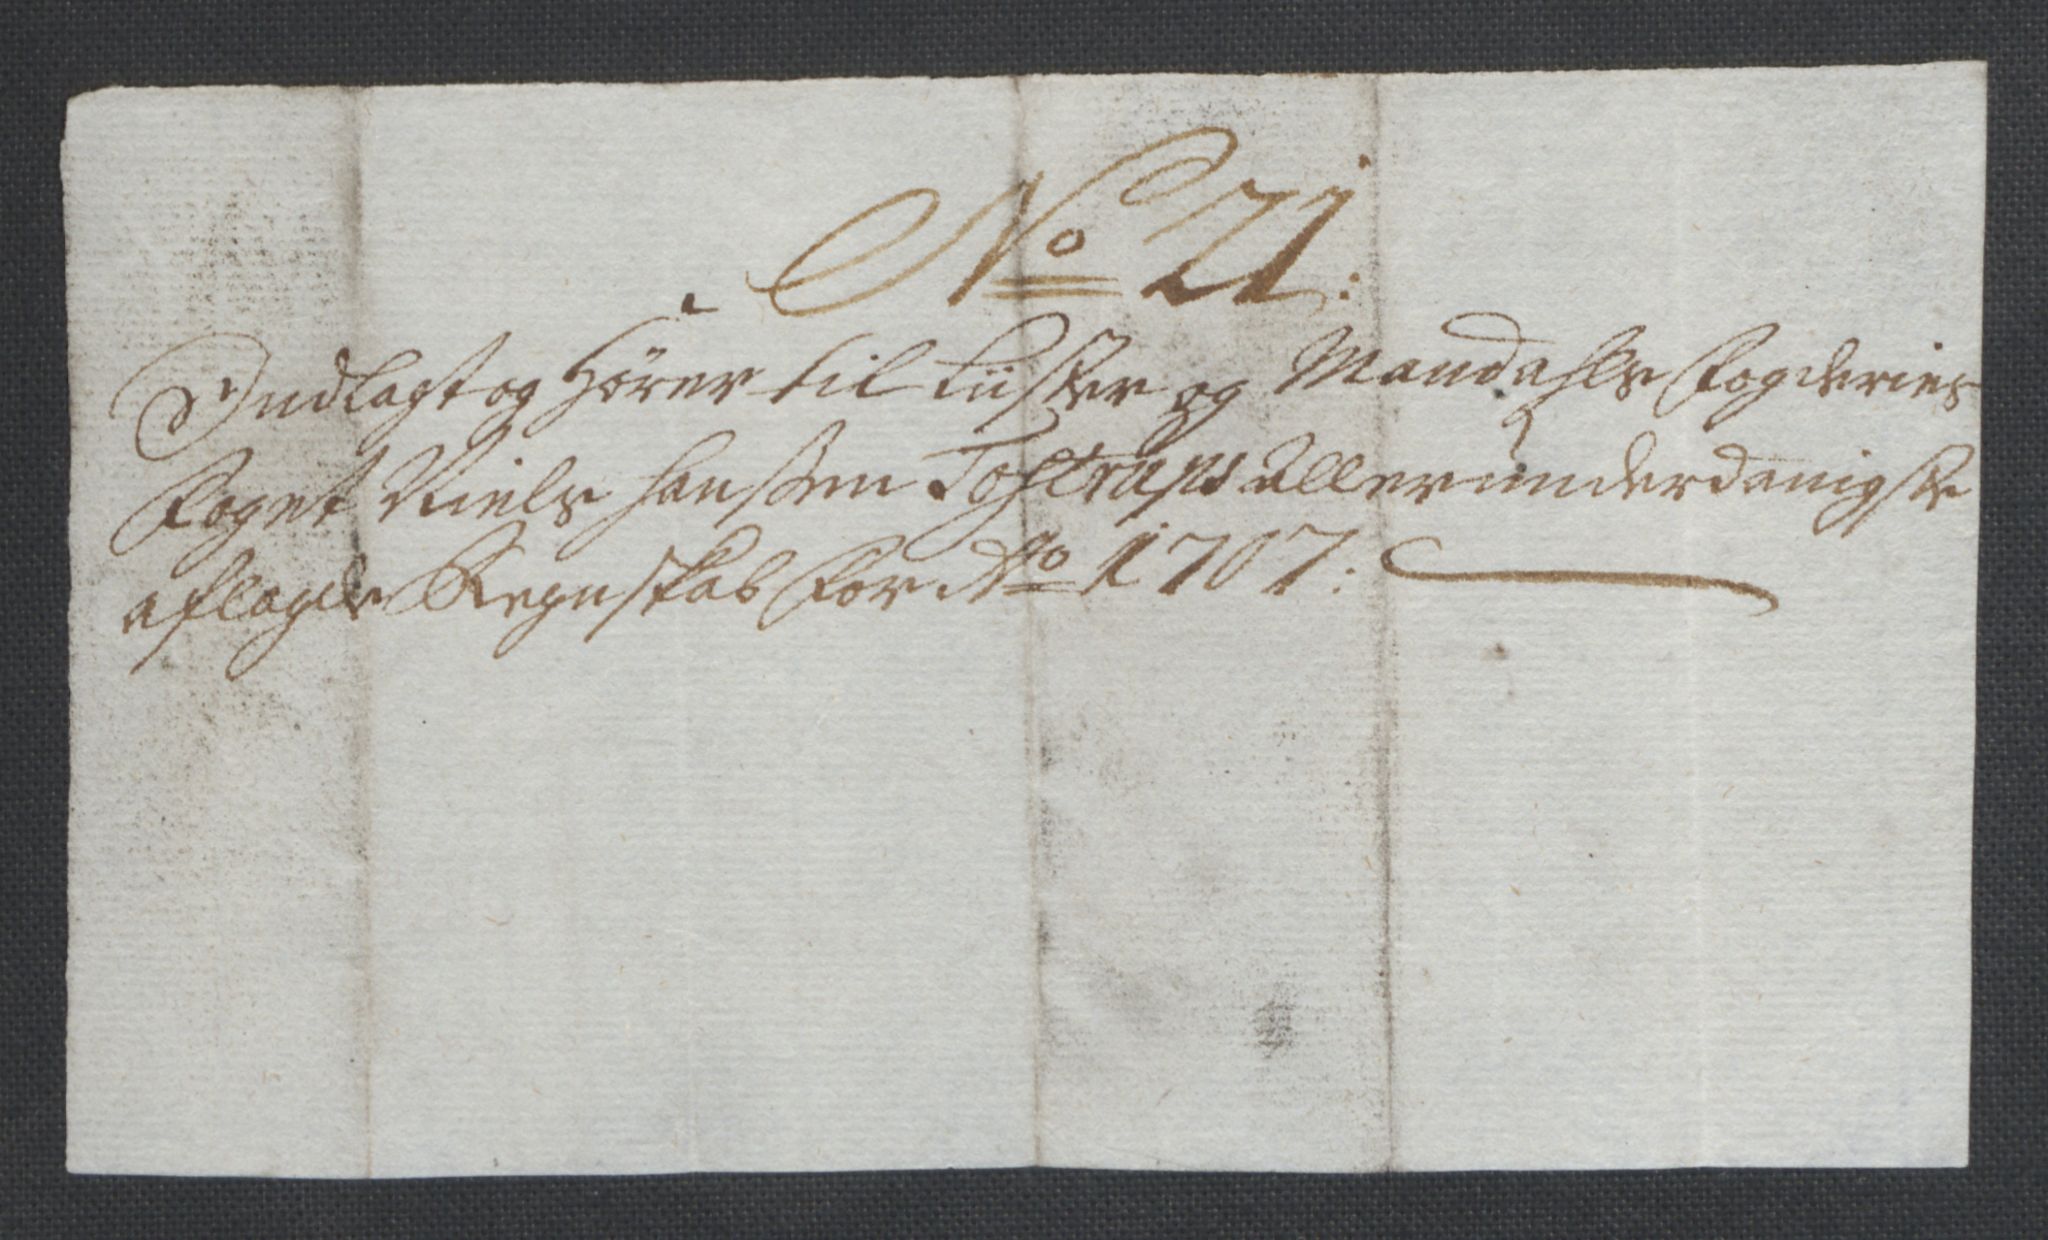 No 21:
Indlagt og Hörer til Lister og Mandahls Fogderies
Foget Niels Hanssen Toftrups Allerunderdanigste
aflagde Regnskab for Ao 1707: